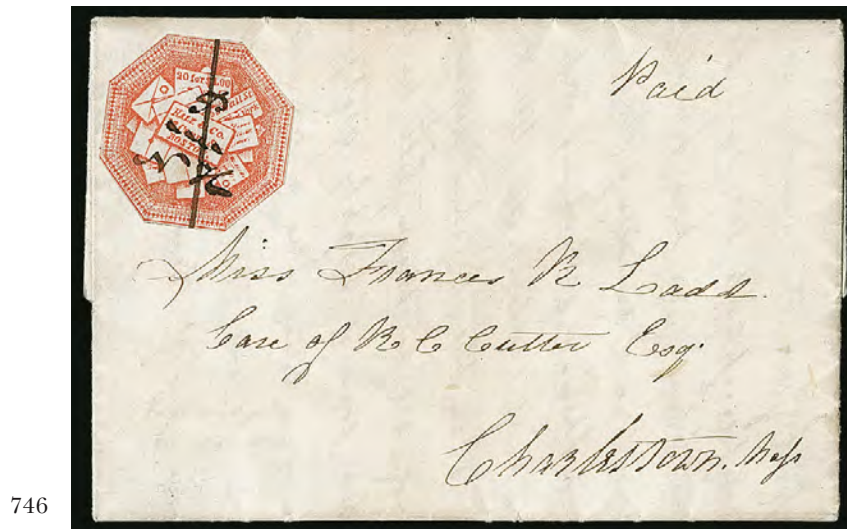 20 for $1.00
HALE & CO.
BOSTON
Paid
Miss Frances R Ladd.
Care of R C Cutter Esq.
Charlestown. Mass
746